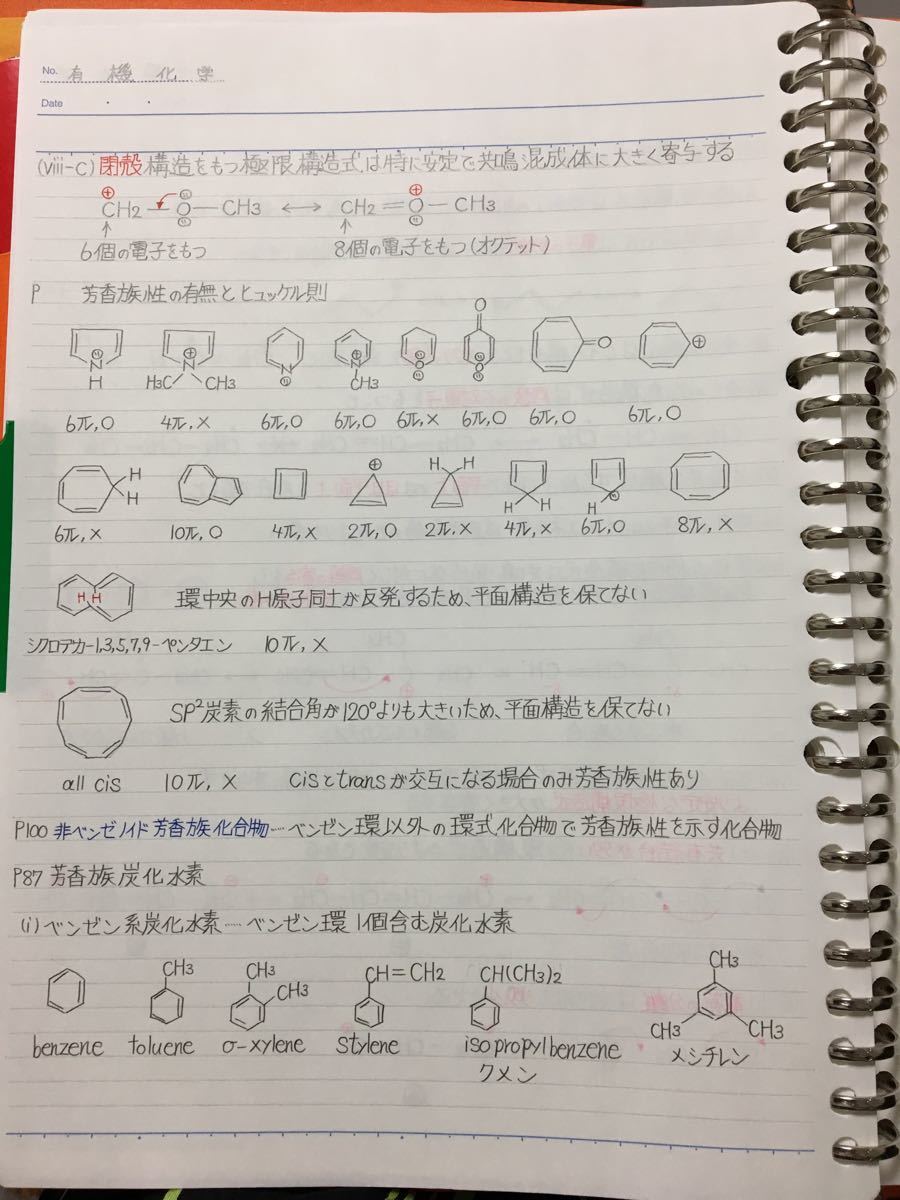 No. 有機化学
Date
(viii-c) 閉殻構造をもつ極限構造式は特に安定で共鳴混成体に大きく寄与する
⊕ ⊕
CH2 — O — CH3 ⟷ CH2 = O — CH3
↑ ↑
6個の電子をもつ 8個の電子をもつ(オクテット)
P 芳香族性の有無とヒュッケル則
O
N N⊕ N N O O =O ⊕
H H3C CH3 CH3
6π,O 4π,× 6π,O 6π,O 6π,× 6π,O 6π,O 6π,O
H H ⊕ H H H H H
6π,× 10π,O 4π,× 2π,O 2π,× 4π,× 6π,O 8π,×
H H 環中央のH原子同士が反発するため、平面構造を保てない
シクロデカ-1,3,5,7,9-ペンタエン 10π,×
SP²炭素の結合角が120°よりも大きいため、平面構造を保てない
all cis 10π,× cisとtransが交互になる場合のみ芳香族性あり
P100 非ベンゼノイド芳香族化合物…ベンゼン環以外の環式化合物で芳香族性を示す化合物
P87 芳香族炭化水素
(i) ベンゼン系炭化水素…ベンゼン環1個含む炭化水素
CH3 CH3 CH3 CH=CH2 CH(CH3)2 CH3 CH3 CH3
benzene toluene o-xylene Stylene isopropylbenzene メシチレン
クメン